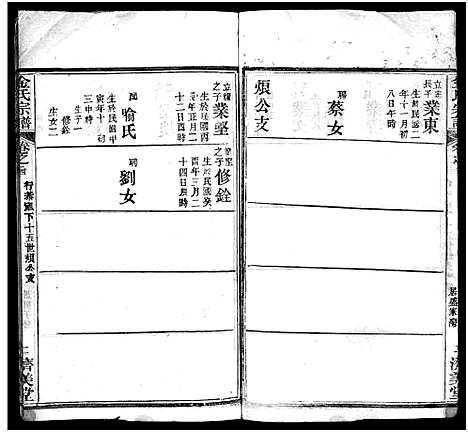 金氏宗譜
立圭
長子
業東
生於民國二
年十一月初
八日午時
聘
蔡女
頍公支
立權
之子
業堃
生於民國丙
辰年正月二
十二日酉時
配
喻氏
生於民國甲
寅年十初
三申時
修銓
生女二
業堃
之子
修銓
生於民國癸
酉年三月二
十四日戌時
聘
劉女
金氏宗譜
卷之首
行業憲下十五世頍公支
濟美堂
濟美堂